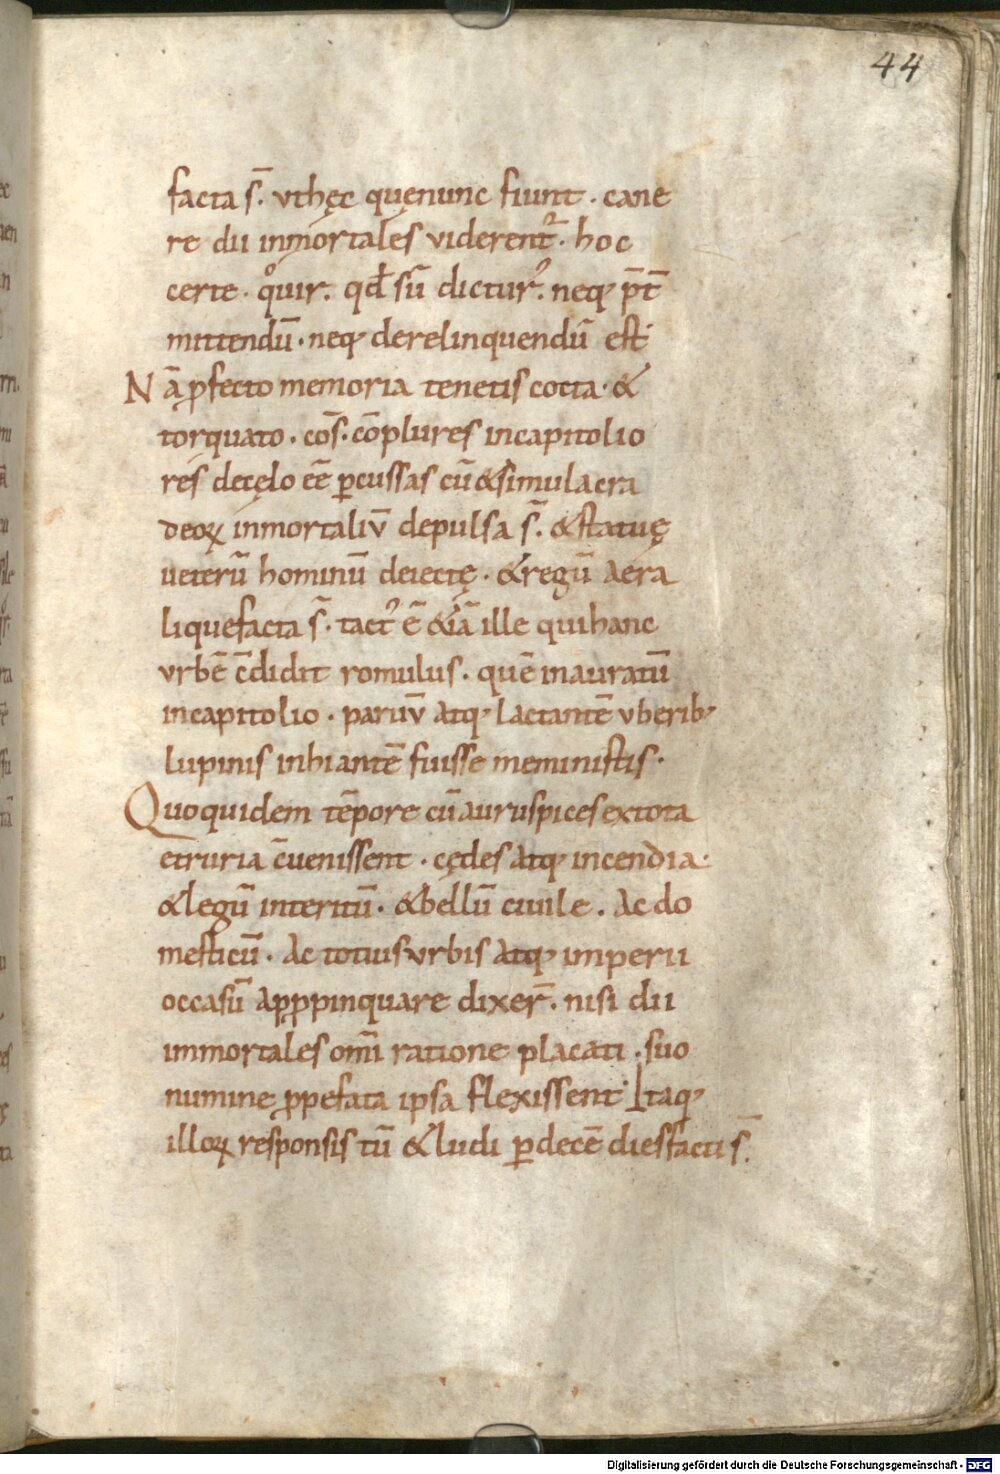 44
facta s̅. vthęc quęnunc fiunt . cane
re dii inmortales viderent᷑ . hoc
certe . qͦuir . qđ sū dictur᾽ . neq; p̅t̅
mittendū . neq; derelinquendū est
Nā ꝓfecto memoria tenetis cotta . &
torquato . co̅s̅ . cōplures incapitolio
res decęlo ee̅ ꝑcussas cū & simulacra
deoꝝ inmortaliv̅ depulsa s̅ . & statuę
ueterū hominū deiectę . & regū aera
liquefacta s̅ . tact᾽ ē &iā ille quihanc
vrbē c̅didit romulus . quē inauratū
incapitolio . paruv̅ atq; lactantē vberib;
lupinis inhiantē fuisse meministis .
Quo quidem tēpore cū auruspices extota
etruria c̅uenissent . cędes atq; incendia .
& legū interitū . & bellū ciuile . ac do
mesticū . ac totius vrbis atq; imperii
occasū apꝓpinquare dixer̅ . nisi dii
immortales omī ratione placati . suo
numine ꝓpefata ipsa flexissent . Itaq;
illoꝝ responsis tū & ludi ꝑ decē dies facti s̅ .
Digitalisierung gefördert durch die Deutsche Forschungsgemeinschaft - DFG